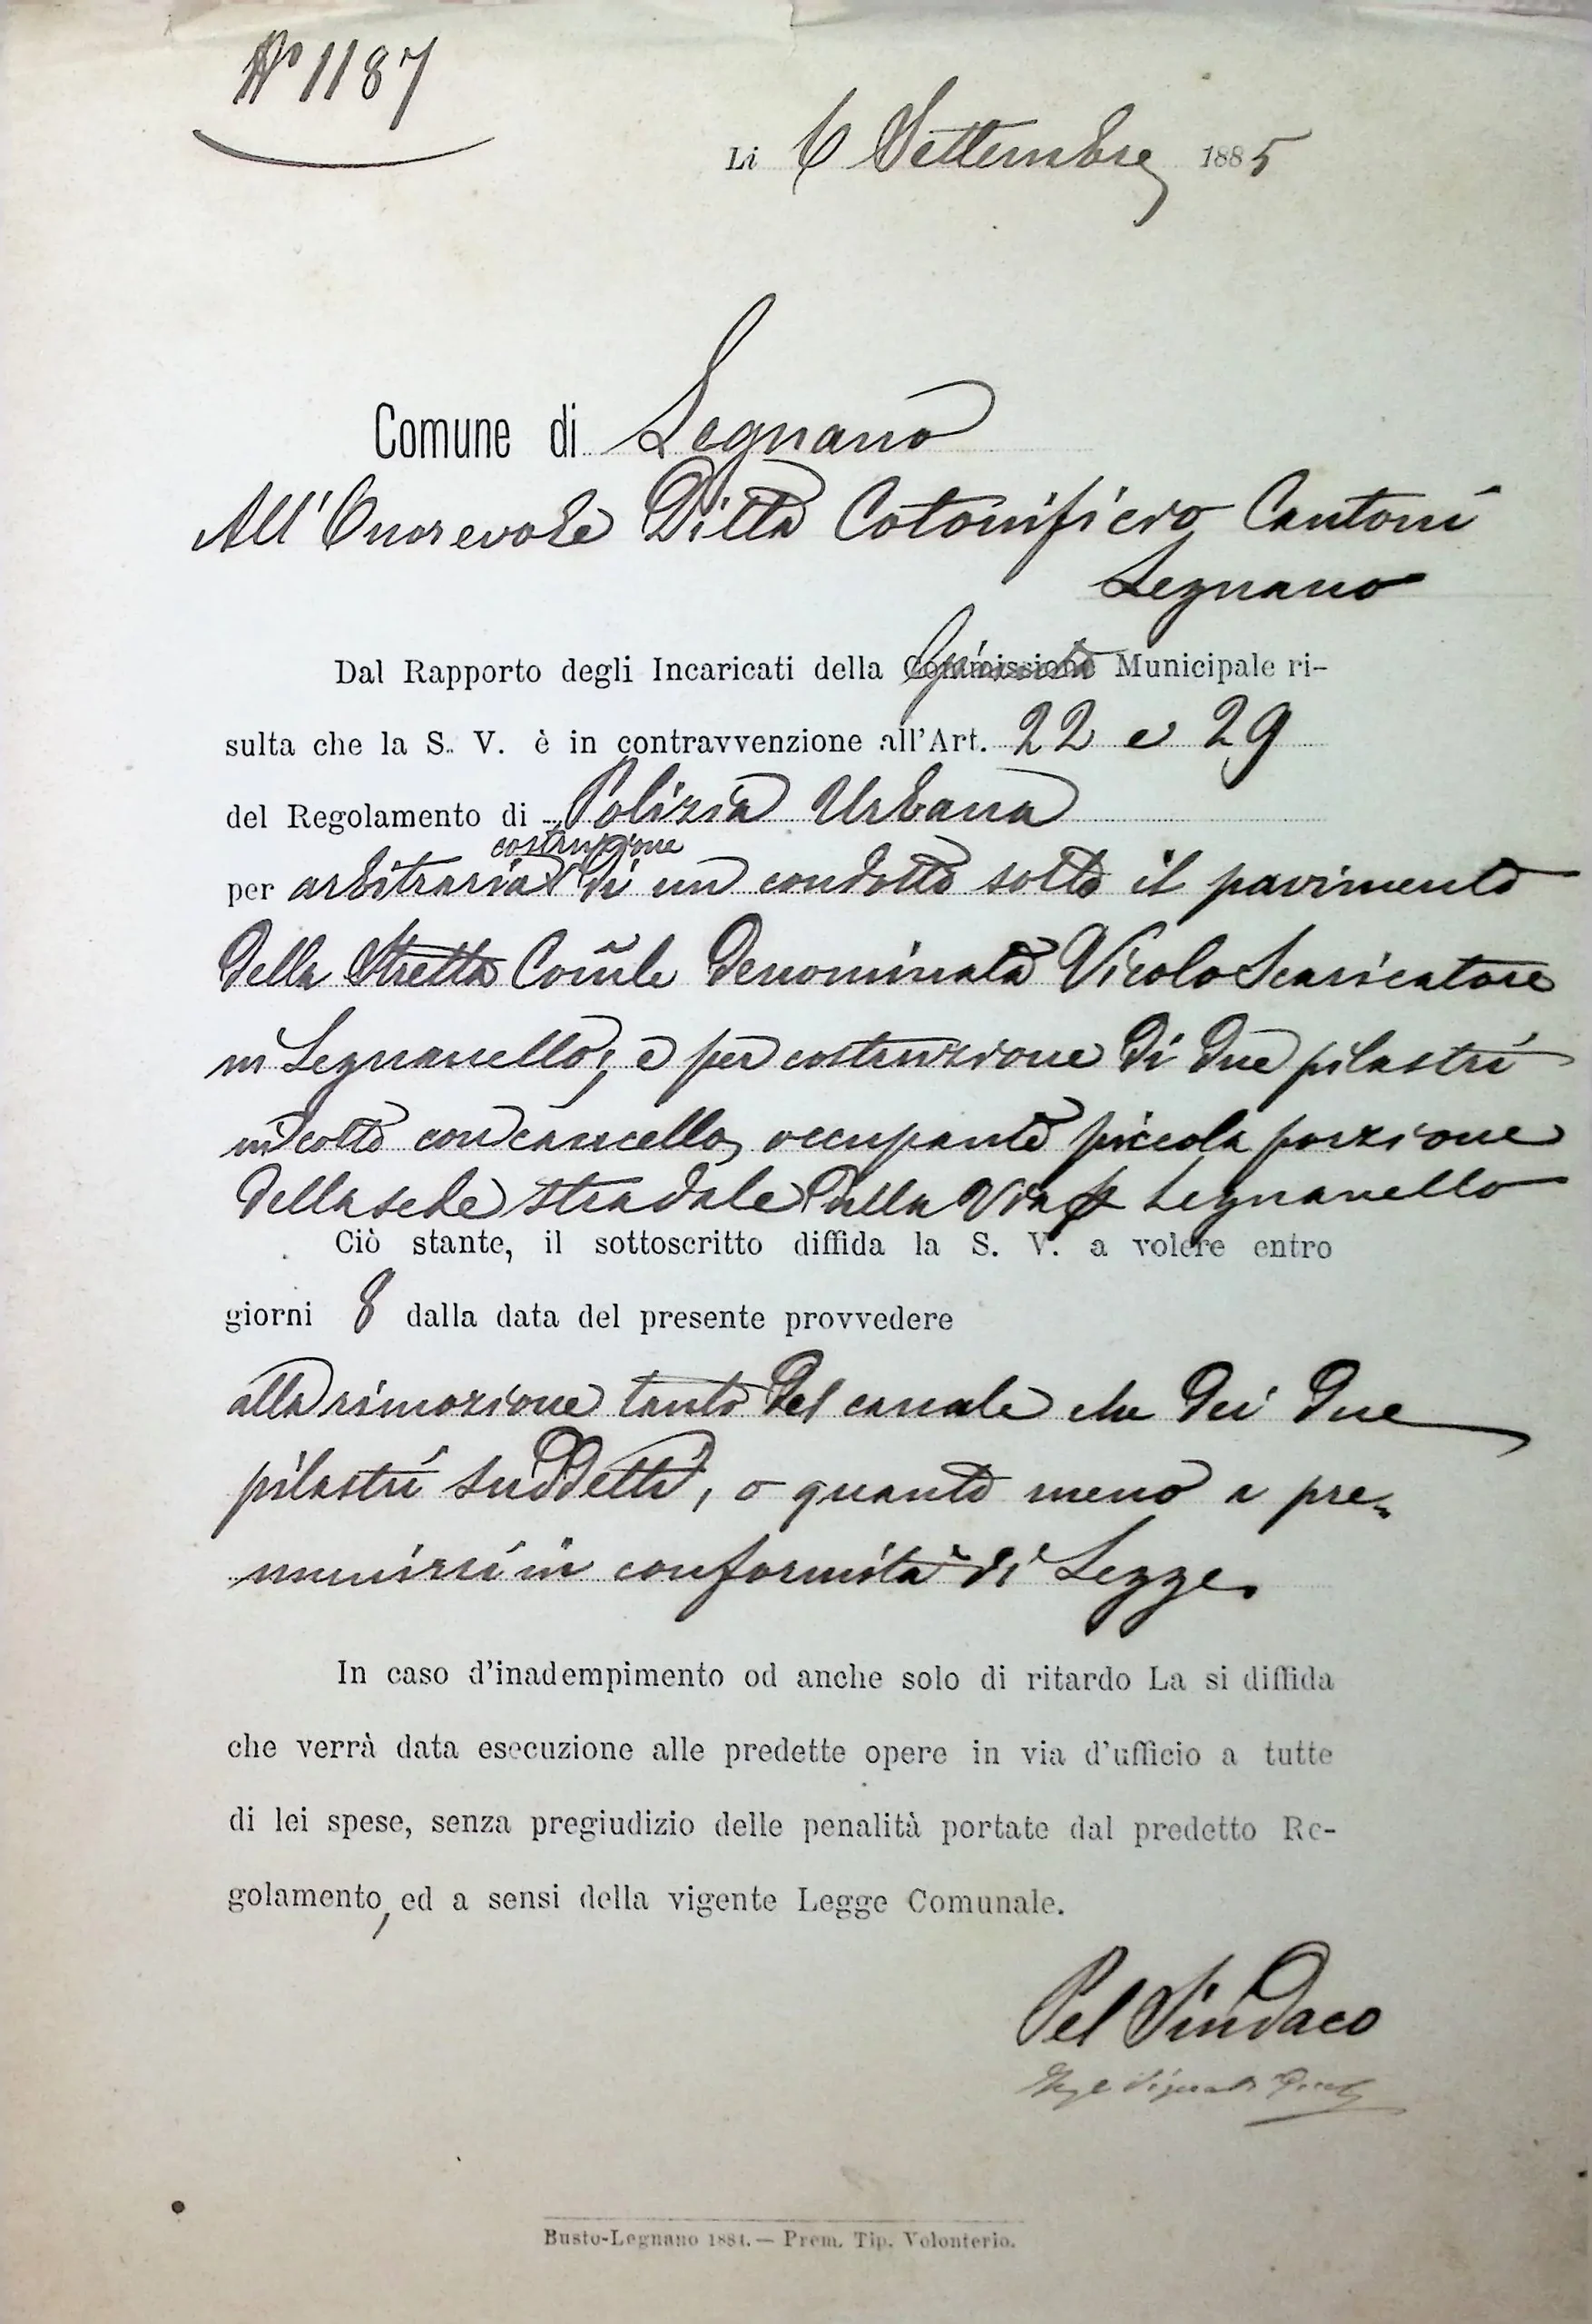 N° 1187
Li 6 Settembre 1885
Comune di Legnano
All'Onorevole Ditta Cotonificio Cantoni
Legnano
Dal Rapporto degli Incaricati della Commissione Municipale ri-
sulta che la S. V. è in contravvenzione all'Art. 22 e 29
del Regolamento di Polizia Urbana
costruzione
per arbitraria di un condotto sotto il pavimento
della Stretta Com̃le denominata Vicolo Scaricatore
in Legnanello; e per costruzione di due pilastri
in cotto con cancello, occupante piccola porzione
della sede stradale sulla Via Legnanello
Ciò stante, il sottoscritto diffida la S. V. a volere entro
giorni 8 dalla data del presente provvedere
alla rimozione tanto del canale che dei due
pilastri suddetti, o quanto meno a pre-
munirsi in conformità di Legge.
In caso d'inadempimento od anche solo di ritardo La si diffida
che verrà data esecuzione alle predette opere in via d'ufficio a tutte
di lei spese, senza pregiudizio delle penalità portate dal predetto Re-
golamento, ed a sensi della vigente Legge Comunale.
Pel Sindaco
Busto-Legnano 1884. — Prem. Tip. Volonterio.